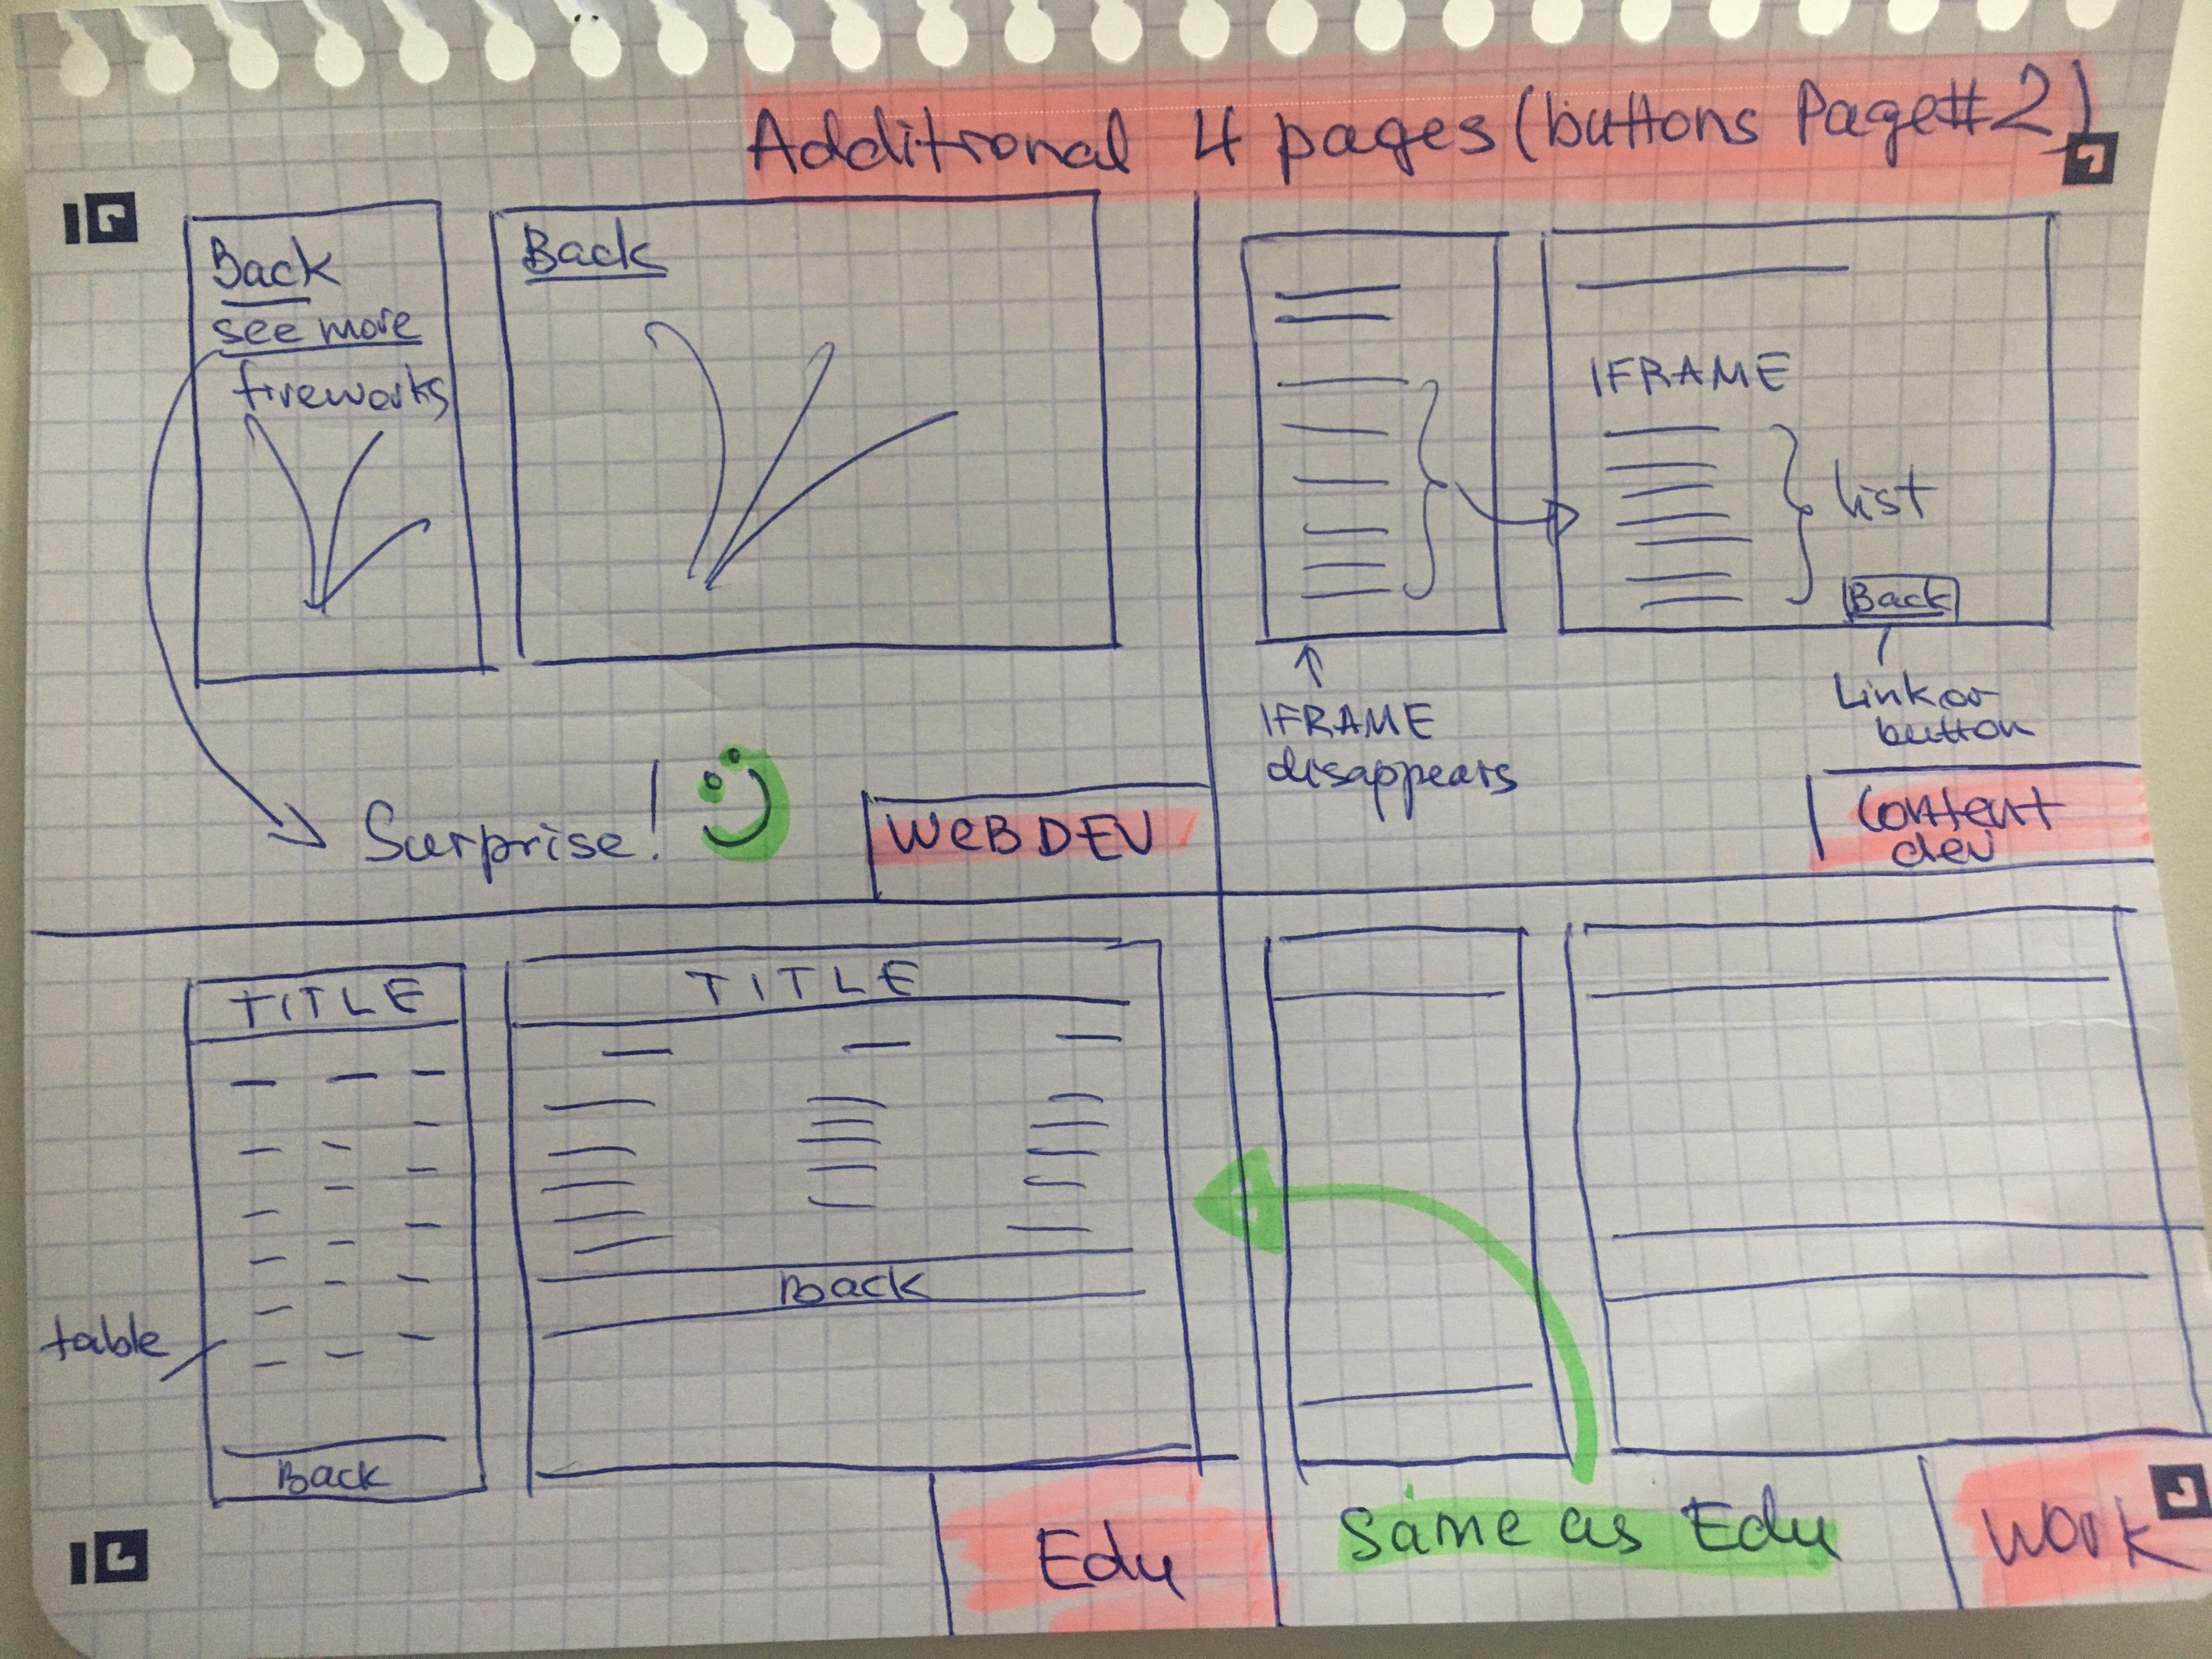 Additional 4 pages (buttons Page#2)
Back
see more
fireworks
Back
Surprise!
WEBDEV
IFRAME
list
Back
IFRAME
disappears
Link or
button
Content
dev
TITLE
table
Back
TITLE
Back
Edu
Same as Edu
Work